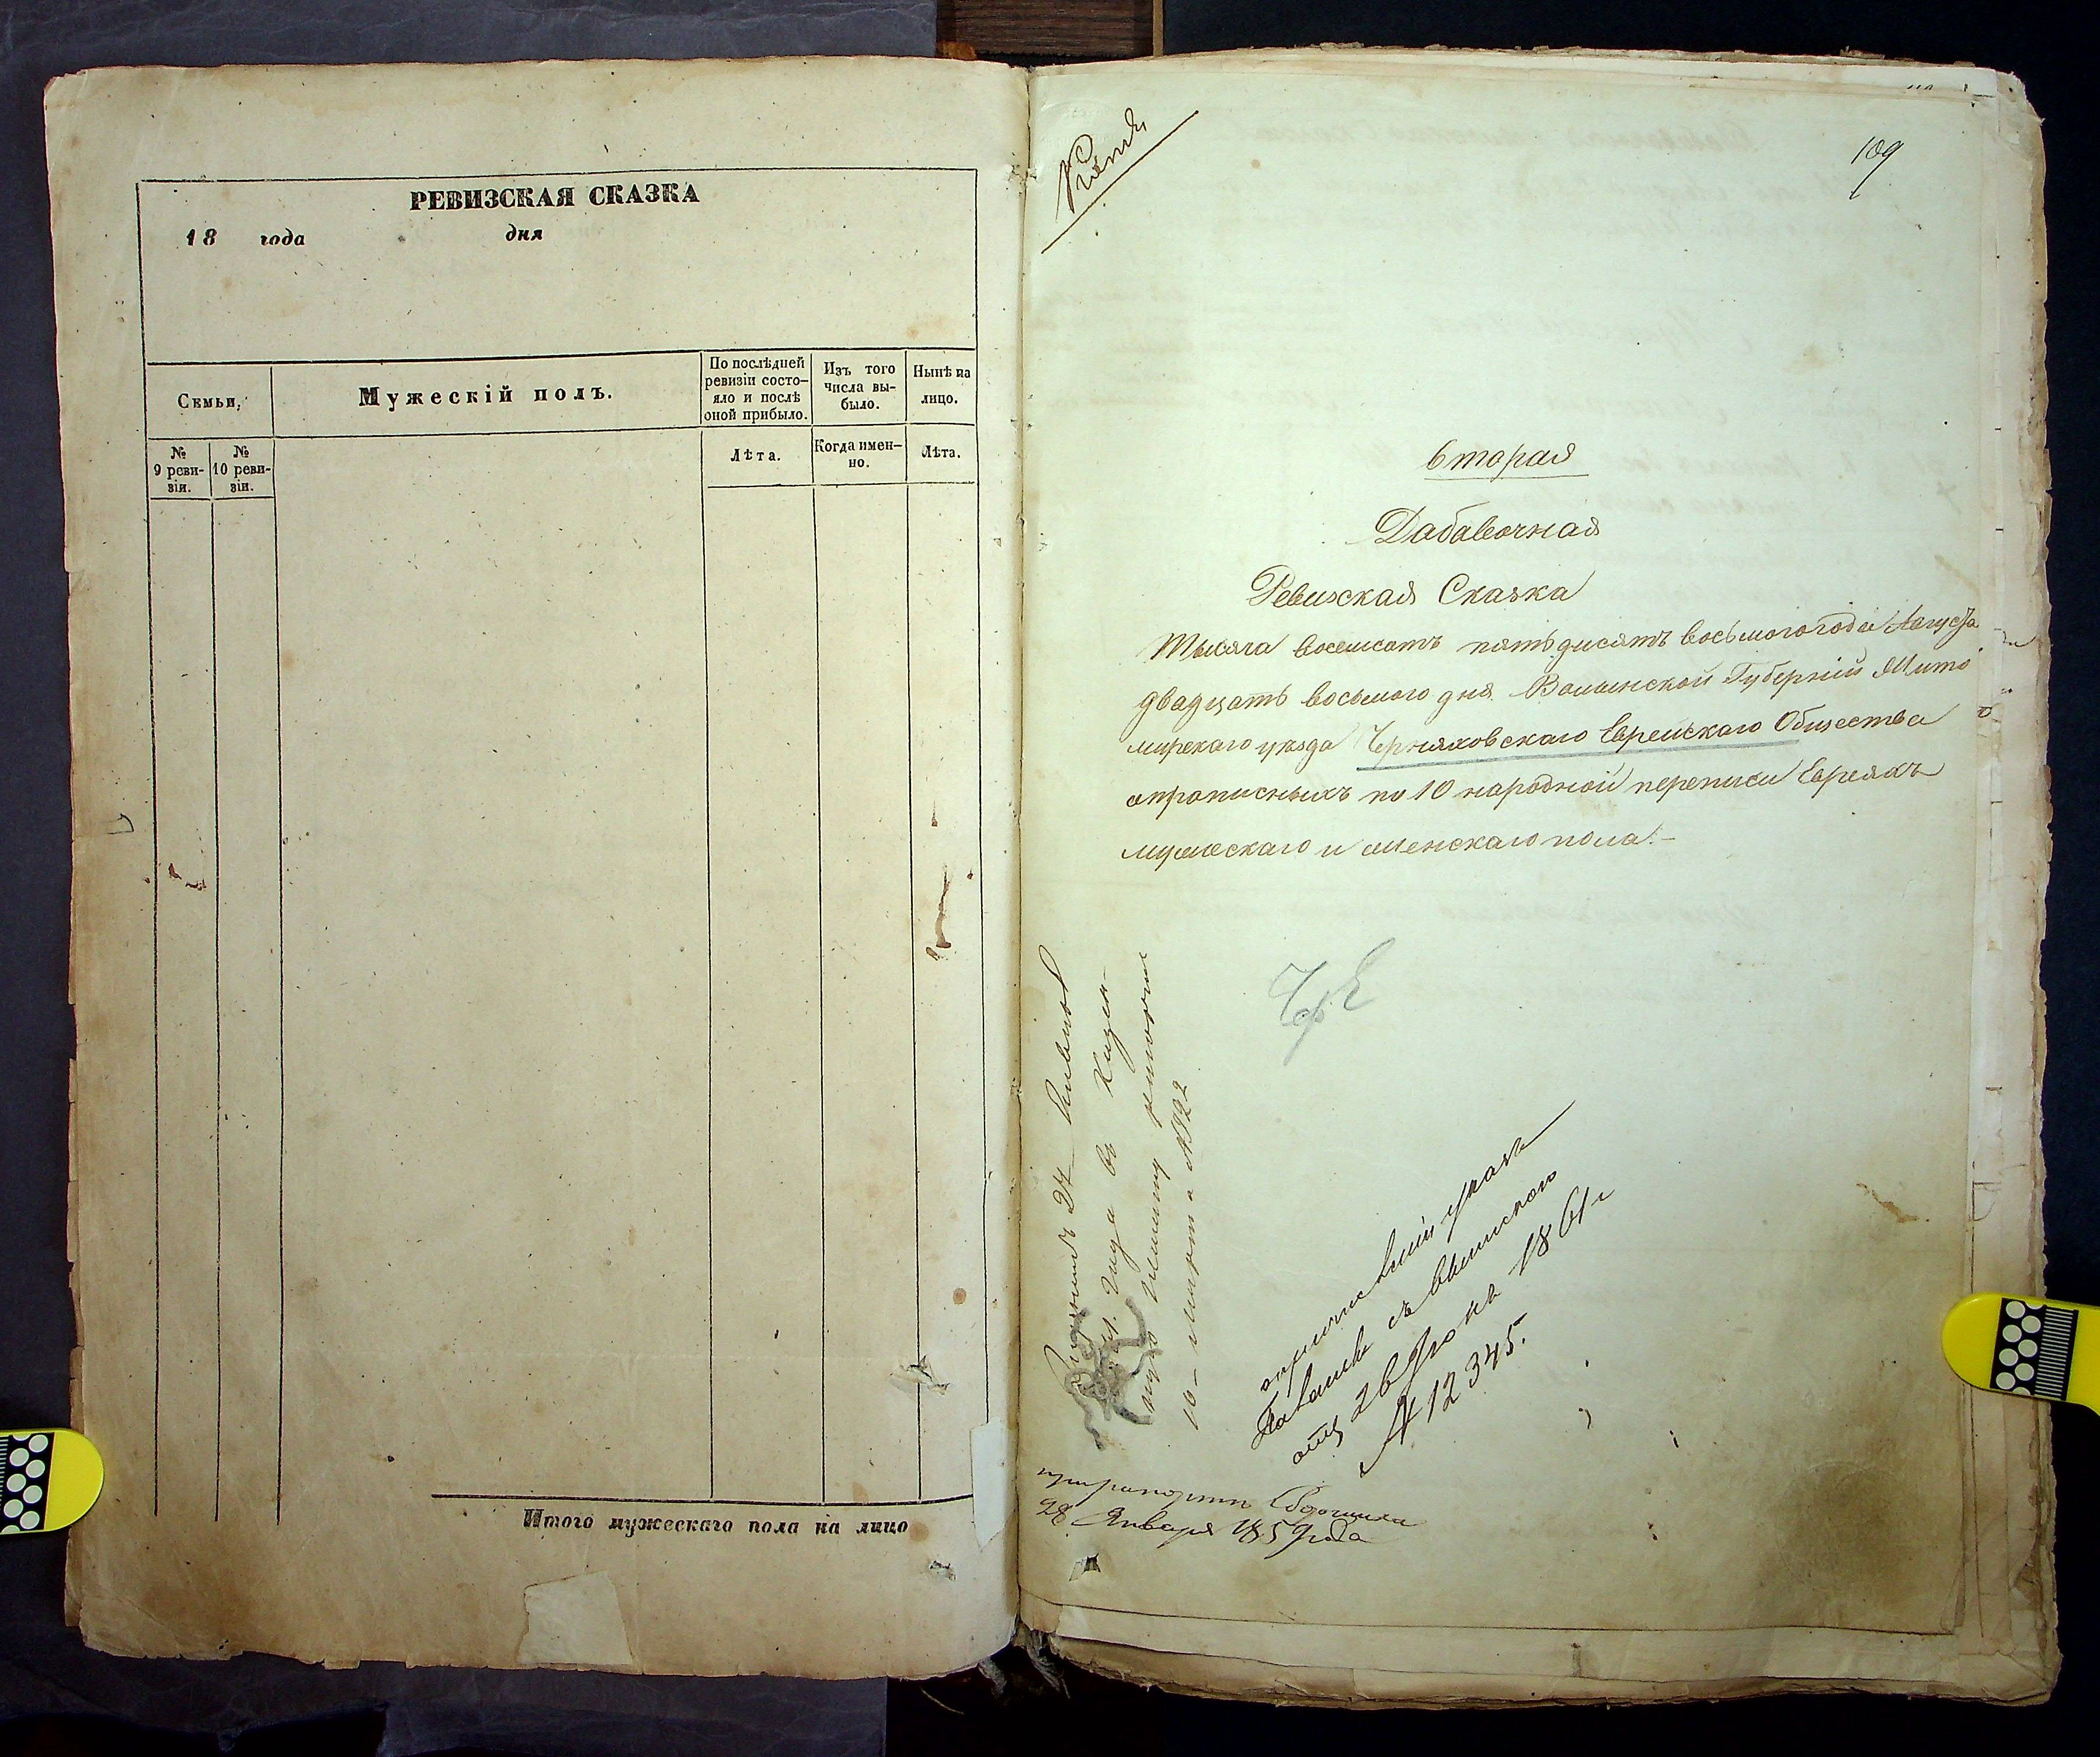 РЕВИЗСКАЯ СКАЗКА
18 года дня
Семьи,
Мужескій полъ.
По послѣдней ревизіи состо-
яло и послѣ оной прибыло.
Изъ того числа вы-
было.
Нынѣ на лицо.
№ 9 реви-
зіи.
№ 10 реви-
зіи.
Лѣта.
Когда имен-
но.
Лѣта.
Итого мужескаго пола на лицо
109
вторая
Дабавочная
Ревизская Сказка
Тысяча восемсотъ пятьдисятъ восьмого года Августа
двадцать восьмого дня Волынской Губерніи Жито
мирскаго уѣзда Черняховскаго Еврейскаго Общества
опрописныхъ по 10 народной переписи Евреяхъ
мужескаго и женскаго пола.-
ЧрЕ
27
года въ
10 марта №922
указъ
Палаты съ
отъ 26 Июня 1861 г
№ 12345.
при рапорте
28 Января 1859 года